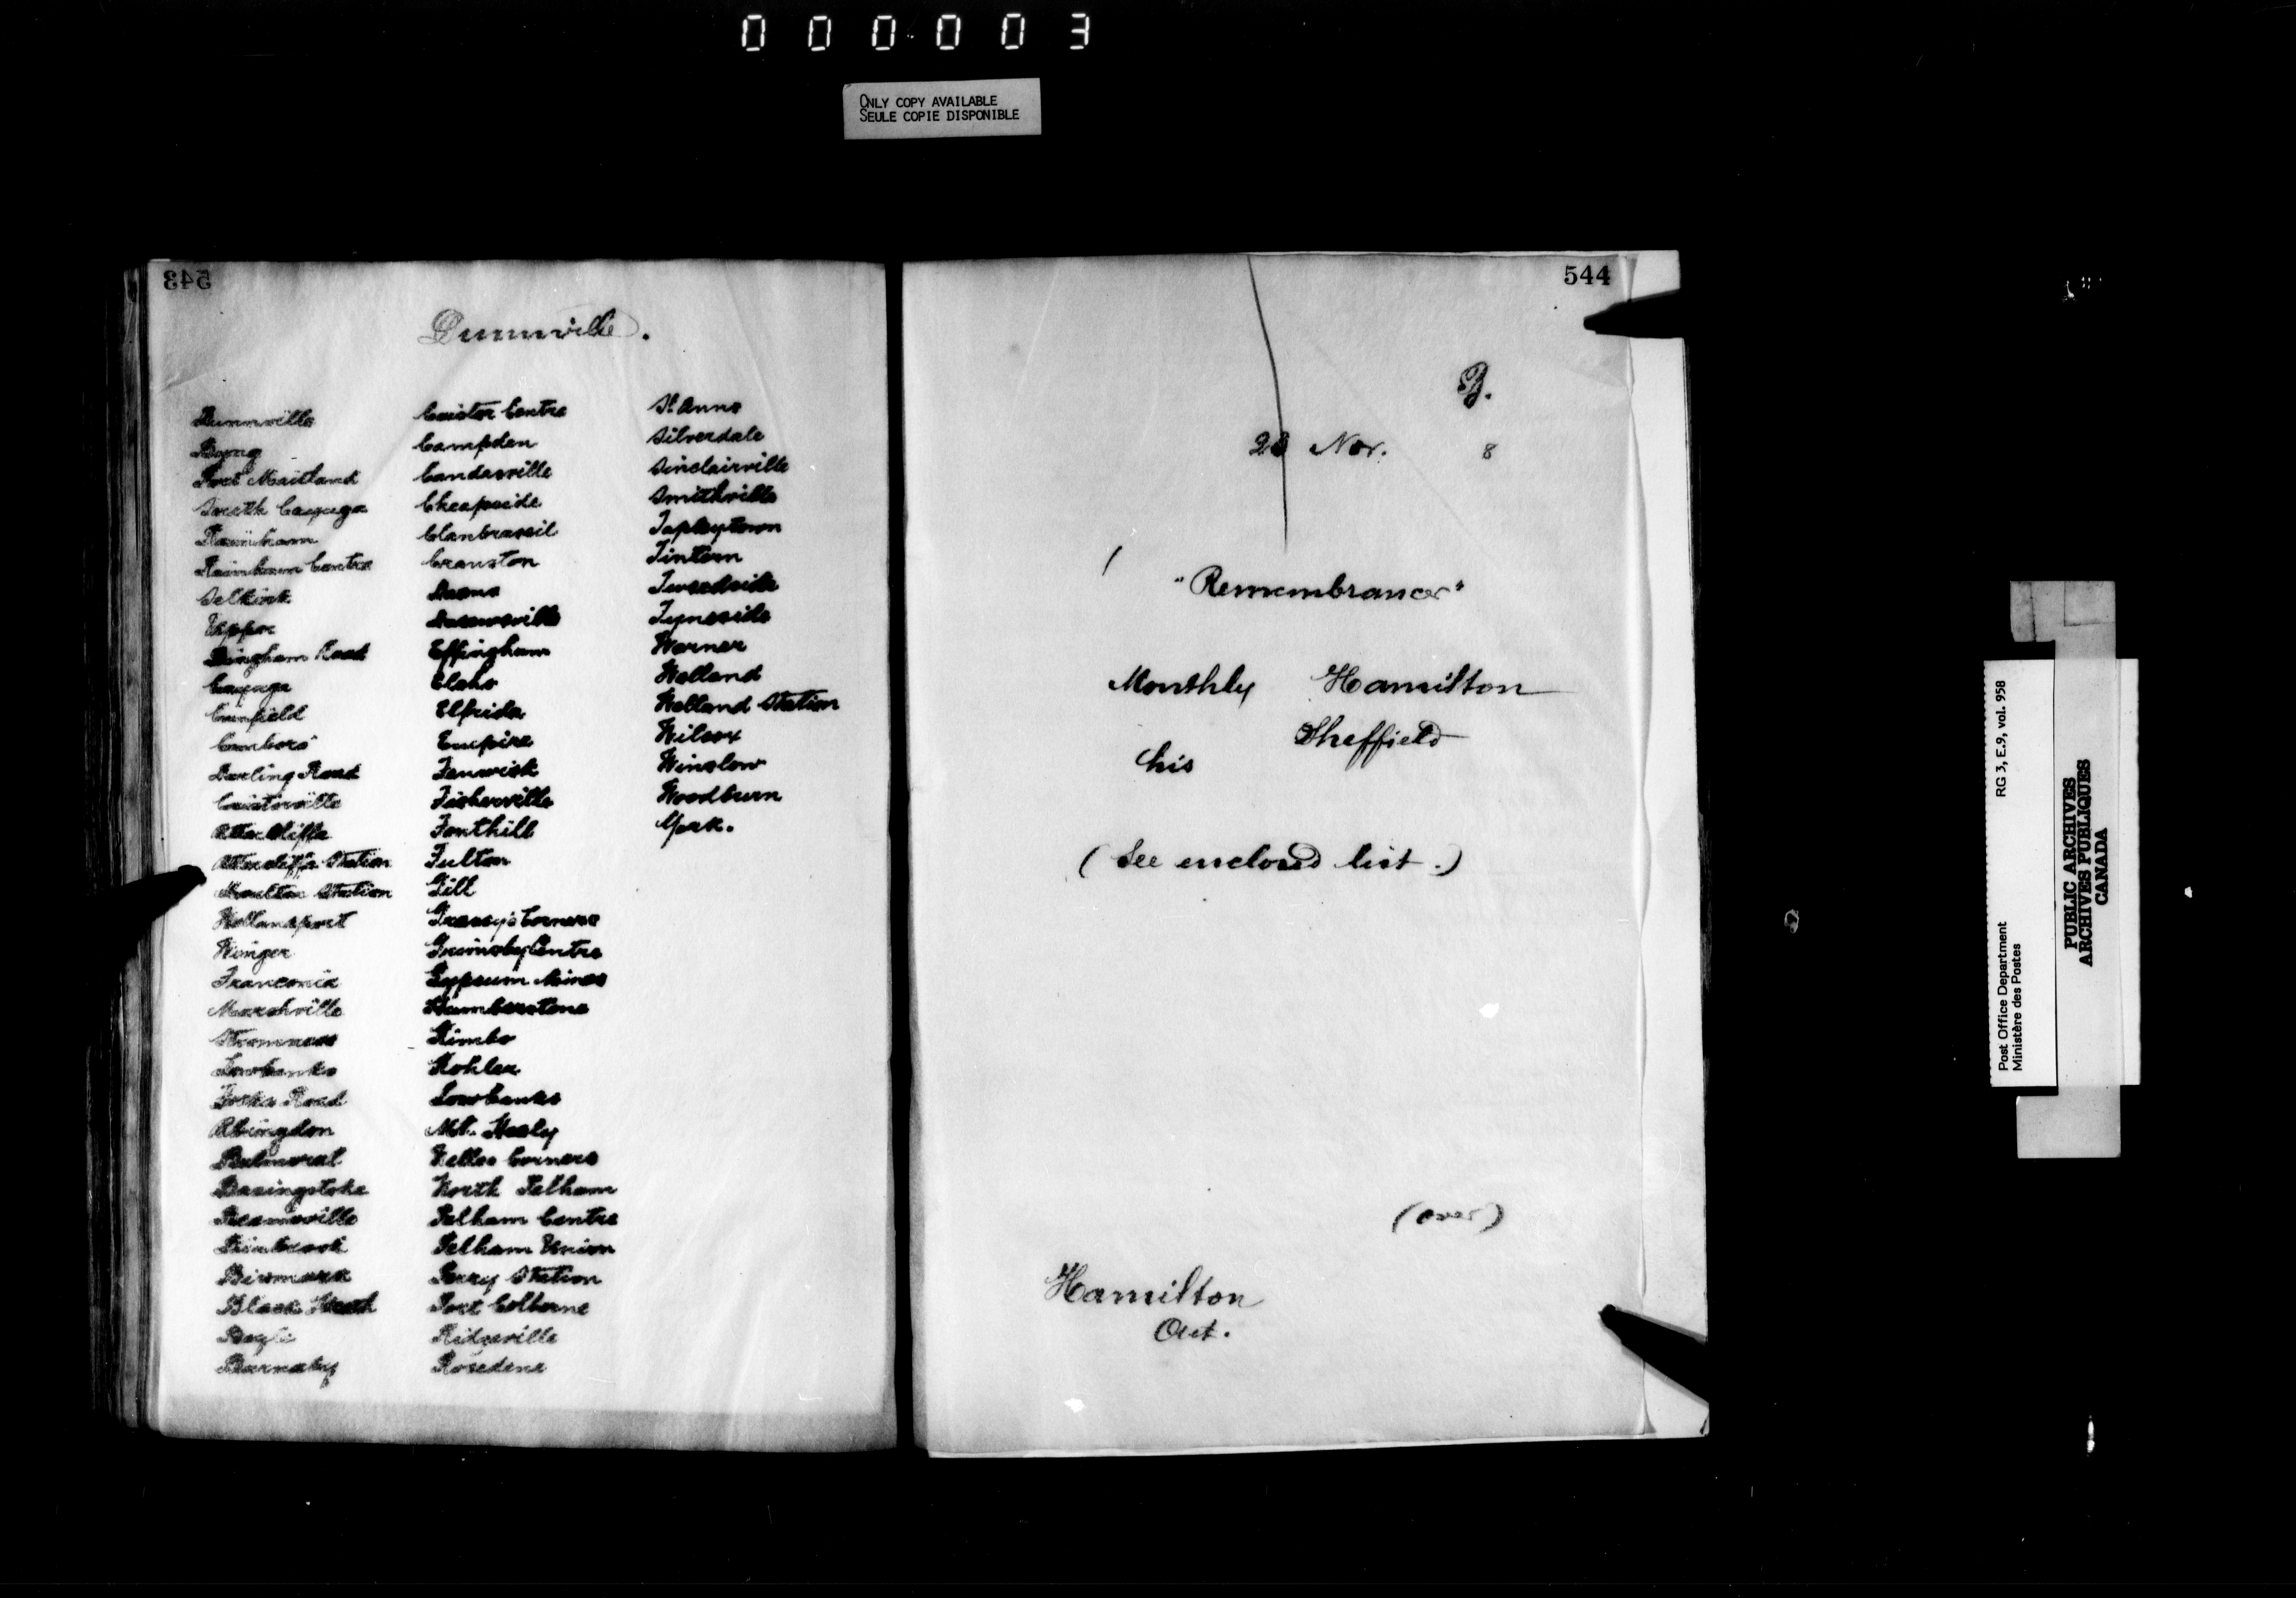 000003
ONLY COPY AVAILABLE
SEULE COPIE DISPONIBLE
543
Dunnville.
Dunnville
Byng
Port Maitland
South Cayuga
Rainham
Rainham Centre
Selkirk
Upper
Dingham Road
Cayuga
Canfield
Canboro
Darling Road
Caistorville
Attercliffe
Attercliffe Station
Moulton Station
Wellandport
Winger
Franconia
Marshville
Stromness
Lowbanks
Forks Road
Abingdon
Balmoral
Basingstoke
Beamsville
Binbrook
Bismark
Black Heath
Boyle
Burnaby
Caistor Centre
Campden
Candasville
Cheapside
Clanbrassil
Cranston
Deans
Decewsville
Effingham
Elcho
Elfrida
Empire
Fenwick
Fisherville
Fonthill
Fulton
Gill
Grassy's Corners
Grimsby Centre
Gypsum Mines
Humberstone
Kimbo
Kohler
Lowbanks
Mt. Healy
Nelles Corners
North Pelham
Pelham Centre
Pelham Union
Perry Station
Port Colborne
Ridgeville
Rosedene
St Anns
Silverdale
Sinclairville
Smithville
Tapleytown
Tintern
Tweedside
Tyneside
Warner
Welland
Welland Station
Wilcox
Winslow
Woodburn
York.
544
B.
Nov. 8
"Remembrancer"
Monthly Hamilton
Sheffield
his
(See enclosed list.)
(over)
Hamilton
Ont.
Post Office Department RG 3, E.9, vol. 958
Ministère des Postes
PUBLIC ARCHIVES
ARCHIVES PUBLIQUES
CANADA